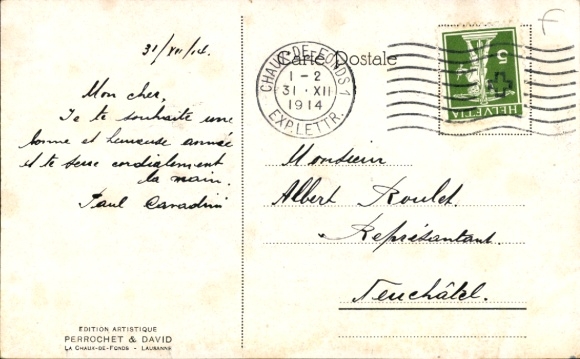 31/XII/14.
Mon cher,
Je te souhaite une
bonne et heureuse année
et te serre cordialement
la main.
Paul
EDITION ARTISTIQUE
PERROCHET & DAVID
LA CHAUX-DE-FONDS - LAUSANNE
Carte Postale
CHAUX-DE-FONDS 1
1-2
31·XII
1914
EXP. LETTR.
5
HELVETIA
F
Monsieur
Albert Roulet.
Représantant.
Neuchâtel.